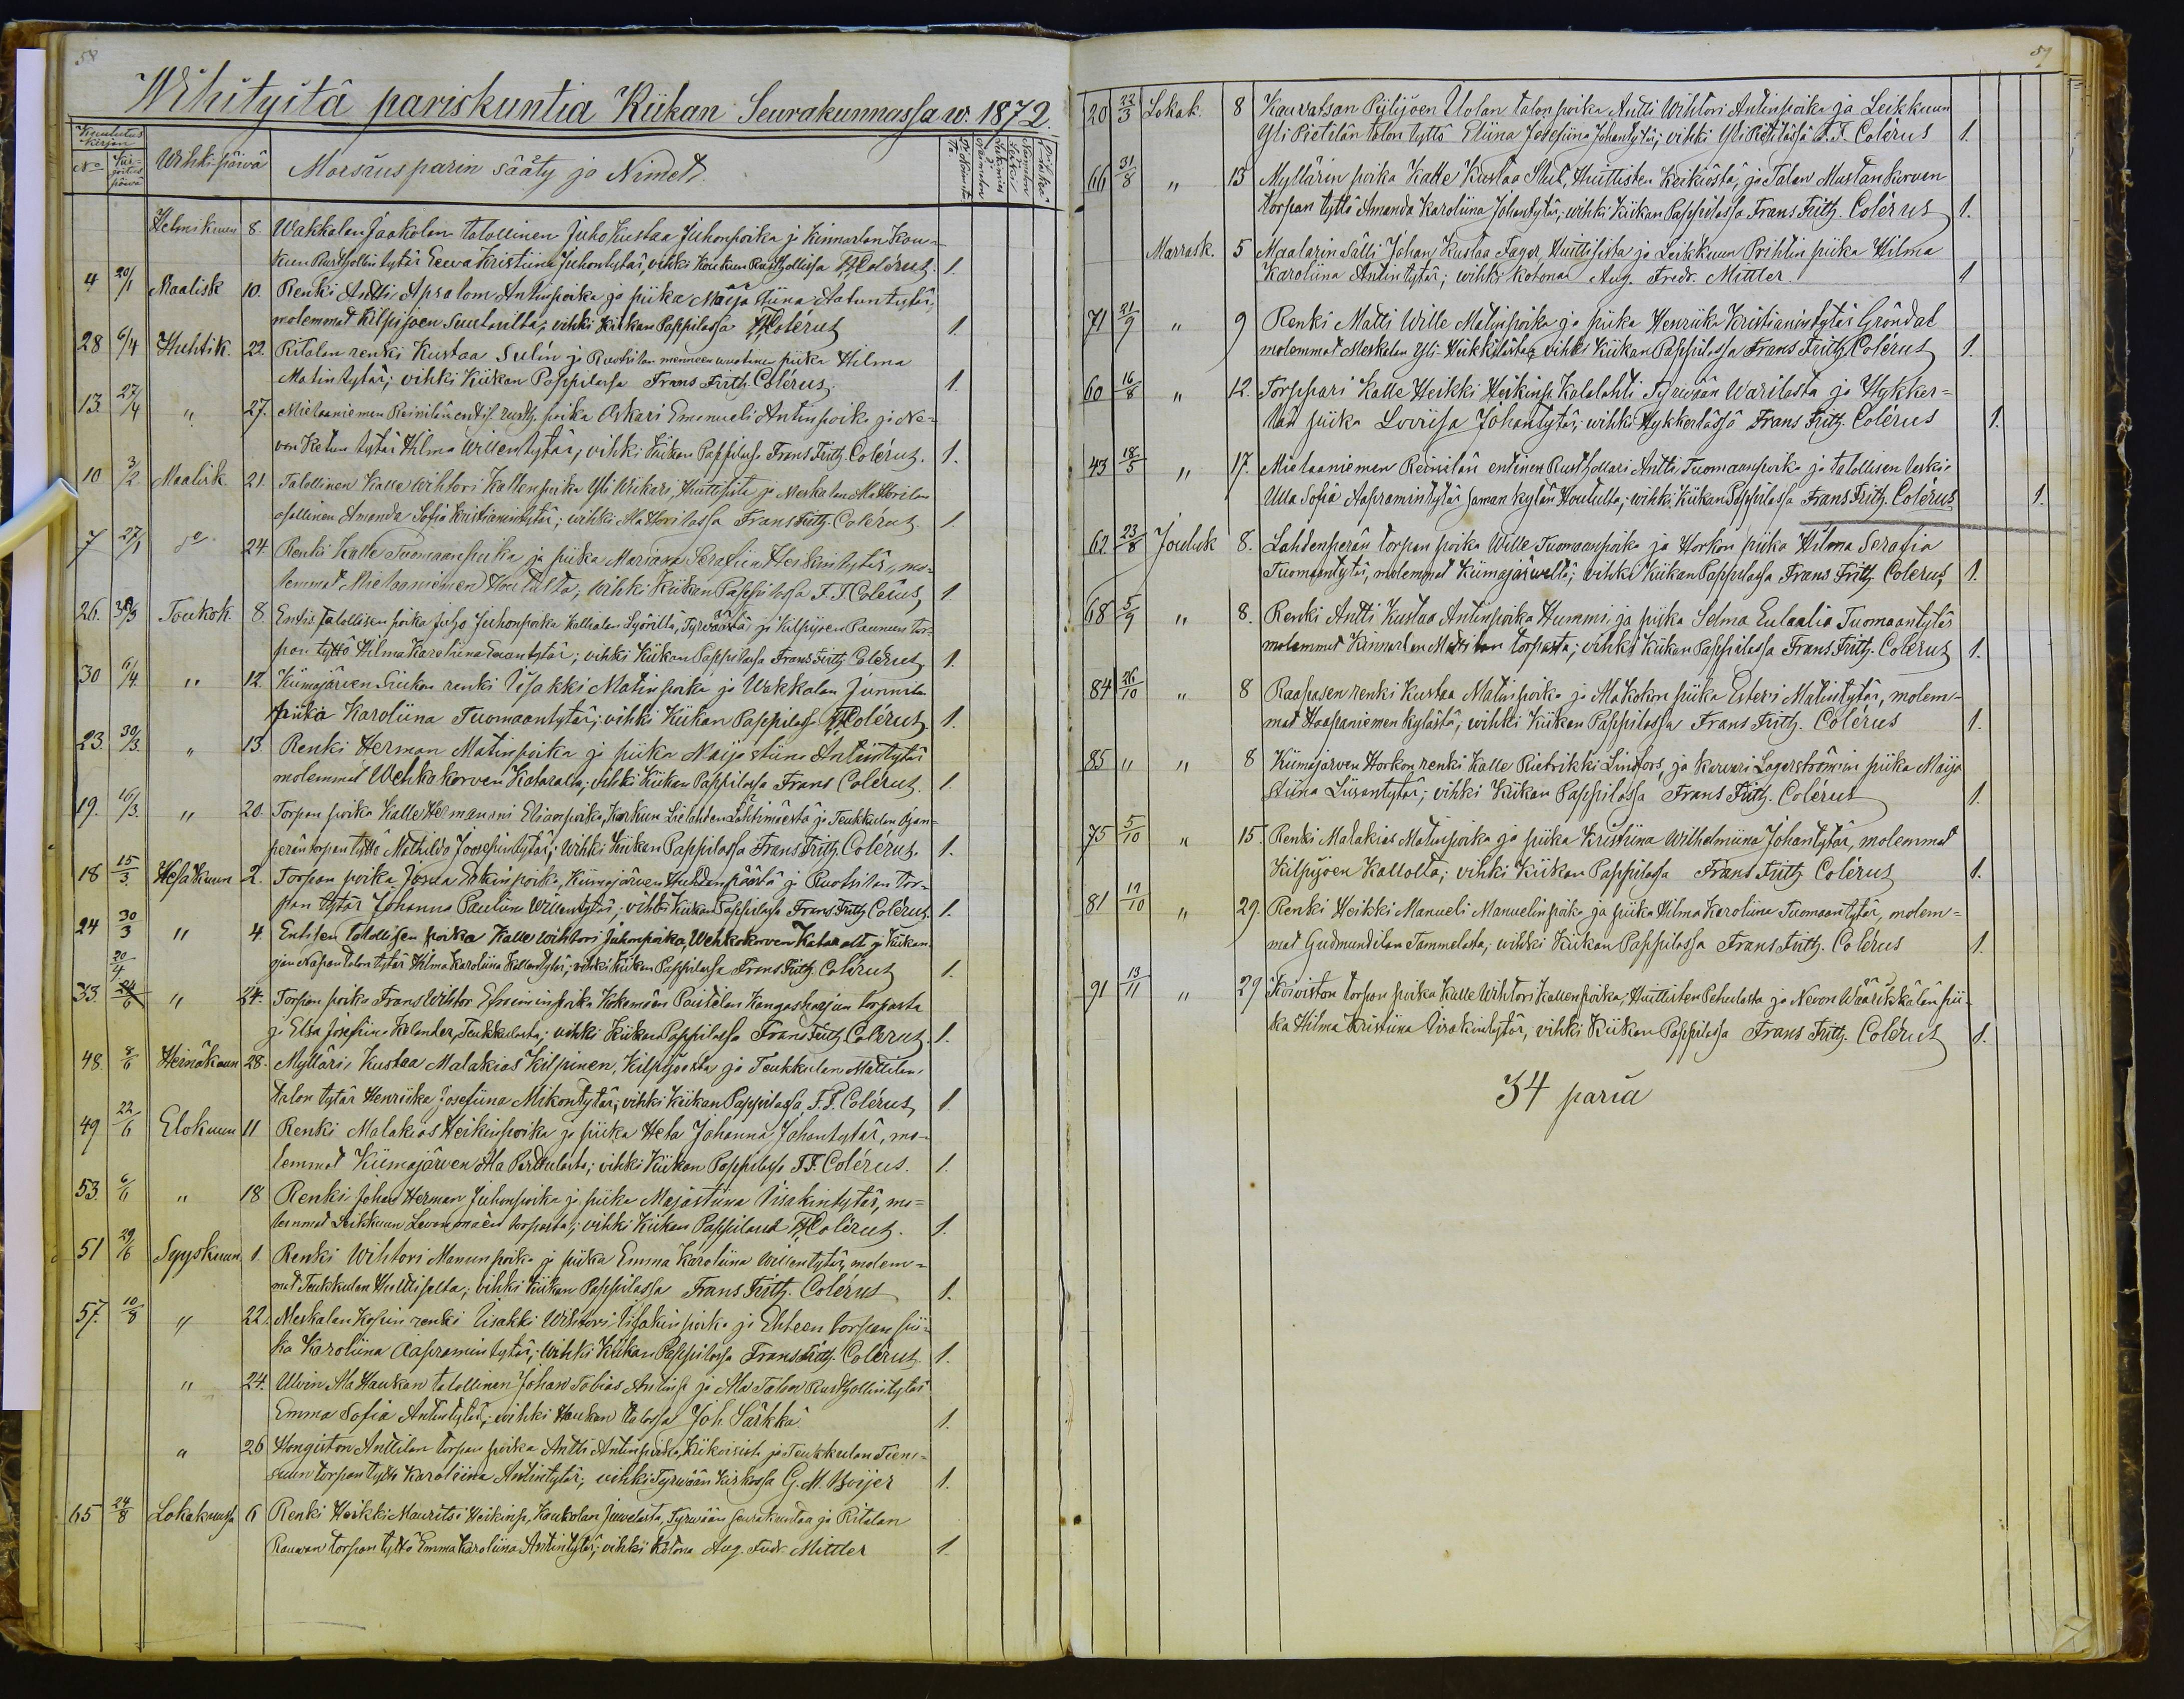 58
Wihityitä pariskuntia Kiikan Seurakunnassa w. 1872.
Kuulutus Kirjan
No Kirjoitus päivä Wihki-päivä Morsiusparin sääty ja Nimet.
Helmikuun 8. Wakkalan Jaakolan talollinen Juho Kustaa Juhonpoika ja Kinnarlan Kou-
kun Rusthollin tytär Eewa Kristiina Juhontytär, vihki Koukun Rusthollissa F.F. Colérus. 1.
4 20/1 Maalisk 10. Renki Antti Apsalom Antinpoika ja piika Maija Stiina Aatuntytär,
molemmat Kilpijoen Suutarilta, vihki Kiikan Pappilassa F.F. Colérus 1.
28 6/4 Huhtik. 22. Ritalan renki Kustaa Sulin ja Ruotsilan menneen vuotinen piika Hilma
Matintytär; vihki Kiikan Pappilassa Frans Frith. Colérus. 1.
13. 27/4 " 27. Mietaaniemen Reinilän entis. rusth. poika Oskari Emanueli Antinpoika ja Ne-
von Ketun tytär Hilma Willentytär, vihki Kiikan Pappilassa Frans Frith. Colérus. 1.
10 3/2 Maalisk 21. Talollinen Kalle Wihtori Kallenpoika Yli Wiikari, Huittisista ja Meskalan Ala Horilan
osallinen Amanda Sofia Kristianintytär; vihki Ala Horilassa Frans Frith. Colérus. 1.
7 27/1 24. Renki Kalle Tuomaanpoika ja piika Mariana Serafiia Heikintytär, mo-
lemmat Mietaaniemen Houtulta; vihki Kiikan Pappilassa F.F. Colérus, 1.
26. 30/3 Toukok. 8. Entis. talollisen poika Juho Juhonpoika Kallialan Syörilta, Tyrväästä ja Kilpijoen Paunun tor-
pan tyttö Hilma Karoliina Eeantytär; vihki Kiikan Pappilassa Frans Frith. Colérus, 1.
30 6/4 " 12. Kiimajärven Siukon renki Iisakki Matinpoika ja Wakkalan Junnila
piika Karoliina Tuomaantytär; vihki Kiikan Pappilassa F.F. Colérus. 1.
23. 30/3 " 13 Renki Herman Matinpoika ja piika Maija Stiina Antintytär
molemmat Wehkakorven Kataralta, vihki Kiikan Pappilassa Frans Colérus. 1.
19. 16/3 " 20. Torpan poika Kalle Hermanni Elianpoika, Karkun Lielahden Lähtimäestä ja Teukkulan Ojan-
perän torpan tyttö Mathilda Joosepintytär; vihki Kiikan Pappilassa Frans Frith. Colérus. 1.
18 15/3 Kesäkuun 2. Torpan poika Josua Erkinpoika, Kiimajärven Huhdanpäästä ja Ruotsilan tor-
pan tytär Johanna Pauliina Willentytär, vihki Kiikan Pappilassa Frans Frith Colérus. 1.
24 30/3 " 4 Entisen talollisen poika Kalle Wihtori Juhonpoika Wehkakorven Kataralt ja Kiikan-
ojan Napan talon tytär Hilma Karoliina Kallentytär; vihki Kiikan Pappilassa Frans Frith. Colérus 1.
33. 20/4 " 24. Torpan poika Frans Wihtor Efraiminpoika Kokemäen Paistilan Kangasharjun torpasta
ja Elsa Josefiina Kalander, Teukkulasta; vihki Kiikan Pappilassa Frans Frith. Colérus. 1.
48. 8/6 Heinäkuun 28. Mylläri Kustaa Malakias Kilpinen, Kilpijoesta ja Teukkulan Mattilan
talon tytär Henriika Josefiina Mikontytär, vihki Kiikan Pappilassa, F.F. Colérus, 1.
49 22/6 Elokuun 11 Renki Malakias Heikinpoika ja piika Heta Johanna Johantytär, mo-
lemmat Kiimajärven Ala Perttulasta; vihki Kiikan Pappilassa F.F. Colérus. 1.
53. 6/6 " 18 Renki Johan Herman Juhonpoika ja piika Majastiina Iisakintytär, mo-
lemmat Leikkuun Levonmäen torpasta; vihki Kiikan Pappilassa F.F. Colérus. 1.
51 29/6 Syyskuun. 1 Renki Wihtori Manunpoika ja piika Emma Karoliina Willentytär, molem-
mat Teukkulan Huittisalta; vihki Kiikan Pappilassa Frans Frith. Colérus 1.
57. 10/8 " 22. Meskalan Kopin renki Iisakki Wihtori Iisakinpoika ja Ehteen torpan pii-
ka Karoliina Aapramintytär; vihki Kiikan Pappilassa Frans Frith. Colérus. 1.
" 24. Ulvin Ala Haukan talollinen Johan Tobias Antinp. ja Ala Talon Rusthollintytär
Emma Sofia Antintytär; vihki Haukan talossa Joh. Särkkä 1.
" 26 Hongiston Anttilan torpan poika Antti Antinpoika, Kiikoisista ja Teukkulan Tiens-
suun torpan tyttö Karoliina Antintytär; vihki Tyrvään Kirkossa G. M. Boijer 1.
65 24/8 Lokakuussa 6 Renki Heikki Mauritsi Heikinp. Kaukolan Juvelasta, Tyrwään seurakuntaa ja Ritalan
Rauwan torpan tyttö Emma Karoliina Antintytär; vihki kotona Aug. Fredr. Mittler 1.
59
20 22/3 Lokak. 8 Kauvatsan Piilijoen Uolan talon poika Antti Wihtori Antinpoika ja Leikkuun
Yli Pietilän talon tyttö Eliina Josefiina Johantytär; vihki Yli Pietilässä F.F. Colérus 1.
66 31/8 " 13 Myllärin poika Kalle Kustaa Stul, Huittisten Keikiöstä, ja Talan Mustankorven
torpan tyttö Amanda Karoliina Johantytär, vihki Kiikan Pappilassa Frans Frith. Colérus 1.
Marrask. 5 Maalarin Sälli Johan Kustaa Fager, Huittisista ja Leikkuun Prihtin piika Hilma
Karoliina Antintytär; vihki kotonaa Aug. Fredr. Mittler. 1
71 21/9 " 9 Renki Matti Wille Matinpoika ja piika Henriika Kristianintytär Gröndal
molemmat Meskalan Yli-Heikkilästä; vihki Kiikan Pappilassa Frans Frith Colérus 1.
60 16/8 " 12. Torppari Kalle Heikki Heikinp. Kalalahti Tyrwään Warilasta ja Hykker-
län piika Loviisa Johantytär; vihki Hykkerlässä Frans Frith. Colérus 1.
43 18/5 " 17. Mietaaniemen Reinilän entinen Rusthollari Antti Tuomaanpoika ja talollisen leski
Ulla Sofia Aapramintytär saman kylän Houtulta; vihki Kiikan Pappilassa Frans Frith. Colérus 1.
62 23/8 Jouluk 8. Lahdenperän torpan poika Wille Tuomaanpoika ja Horkon piika Hilma Serafia
Tuomaantytär, molemmat Kiimajärweltä; vihki Kiikan Pappilassa Frans Frith Colérus, 1.
68 5/9 " 8. Renki Antti Kustaa Antinpoika Hummi, ja piika Selma Eulaalia Tuomaantytär
molemmat Kinnarlan Mattilan torpasta; vihki Kiikan Pappilassa Frans Frith. Colérus 1.
84 26/10 " 8 Raapasen renki Kustaa Matinpoika ja Makokon piika Esteri Matintytär, molem-
mat Haapaniemen kylästä; vihki Kiikan Pappilassa Frans Frith. Colérus 1.
85 " " 8 Kiimajärven Horkon renki Kalle Rietrikki Lindfors, ja karvari Lagerströmin piika Maija
Stiina Liisantytär; vihki Kiikan Pappilassa Frans Frith. Colérus 1.
75 5/10 " 15 Renki Malakias Matinpoika ja piika Kristiina Wilhelmiina Johantytär, molemmat
Kilpijoen Kallolta; vihki Kiikan Pappilassa Frans Frith Colérus 1.
81 19/10 " 29. Renki Heikki Manueli Manuelinpoika ja piika Hilma Karoliina Tuomaantytär, molem-
mat Gudmundilan Tammelasta; vihki Kiikan Pappilassa Frans Frith. Colérus 1.
91 13/11 " 29 Koiviston torpan poika Kalle Wihtori Kallenpoika, Huittisten Pehulasta ja Nevon Wäärikkälän pii-
ka Hilma Kristiina Iisakintytär, vihki Kiikan Pappilassa Frans Frith. Colérus 1.
34 paria